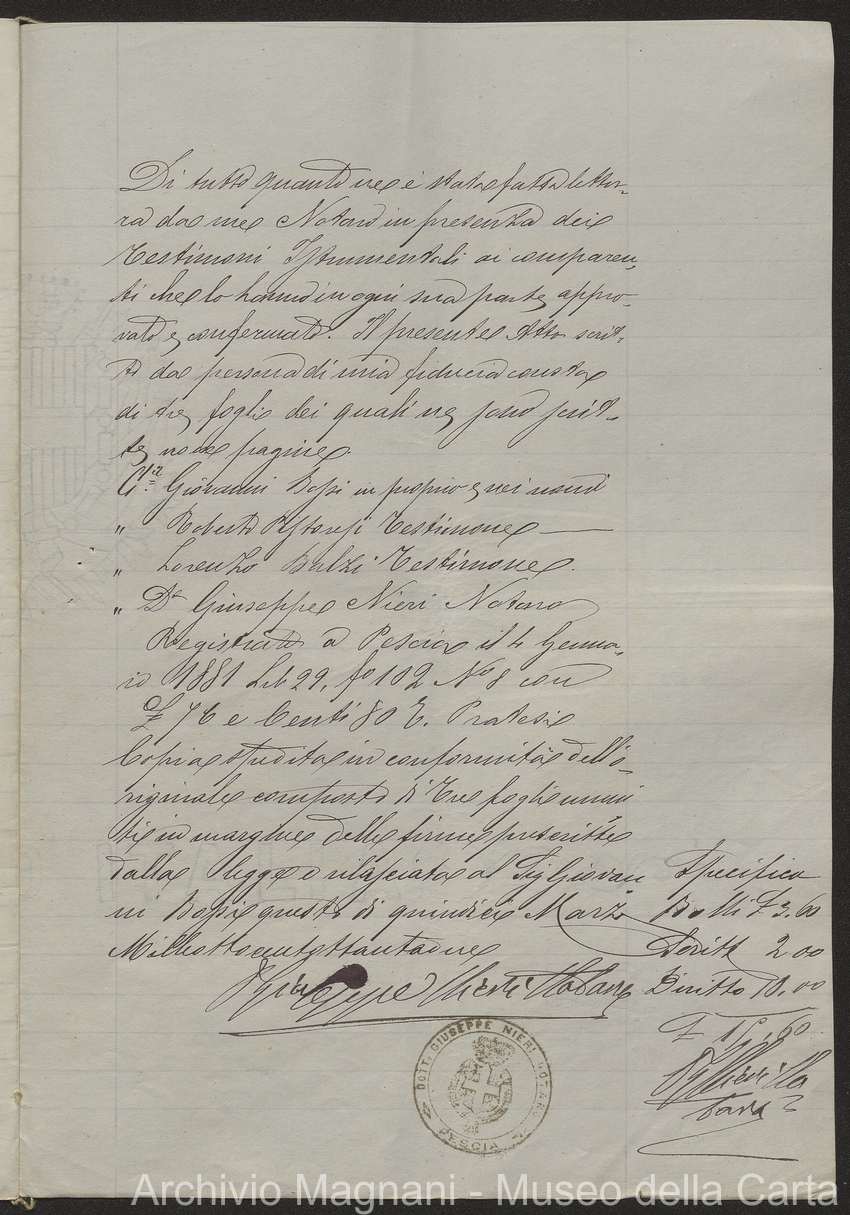 Di tutto quanto ne è stata fatta lettu-
ra da me Notaro in presenza dei
Testimoni Istrumentali ai comparen-
ti che lo hanno in ogni sua parte appro-
vato e confermato. Il presente Atto scrit-
to da persona di mia fiducia consta
di tre fogli dei quali ne sono scrit-
te nove pagine.
Giovanni Bossi in proprio e nei nomi
" Roberto Testimone
" Lorenzo Testimone.
" Dr Giuseppe Nieri Notaro
Registrato a Pescia il 4 Genna-
io 1881 Lib 29. fo 102 No 8 con
£ 76 e Centi 80 Pratesi
Copia spedita in conformità dell'o-
riginale composto di Tre fogli muni
ti in margine delle firme prescritte
dalla legge e rilasciata al Sig Giovan
ni Bossi questo dì quindici Marzo
Milleottocentottantuno
Giuseppe Nieri Notaro
Specifica
Bolli £ 3.60
Scritt 2.00
Diritto 10.00
£ 15.60
G Nieri No
taro
DOTT: GIUSEPPE NIERI NOTARO
PESCIA
Archivio Magnani - Museo della Carta